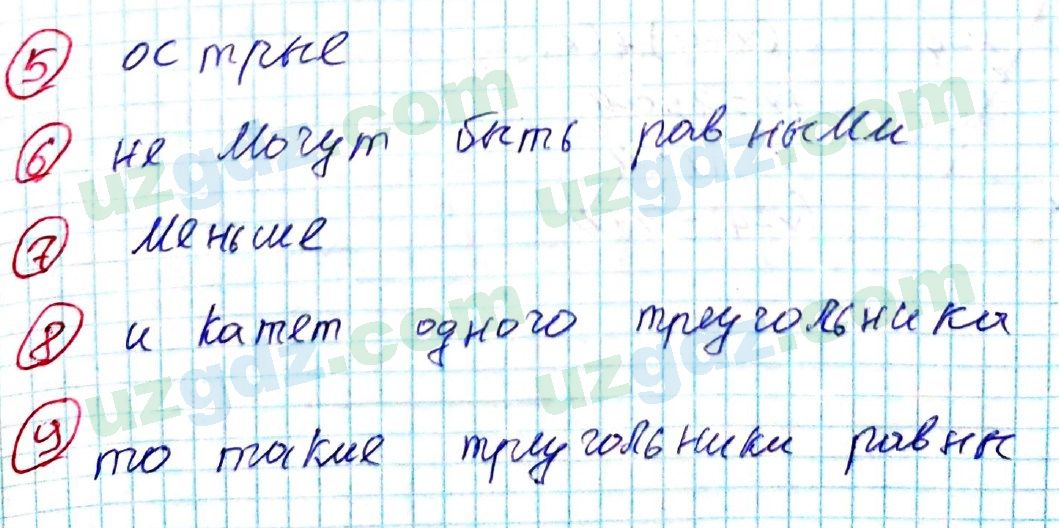 5 острые
6 не могут быть равными
7 меньше
8 и катет одного треугольника
9 то такие треугольники равны
uzgdz.com
uzgdz.com
uzgdz.com
uzgdz.com